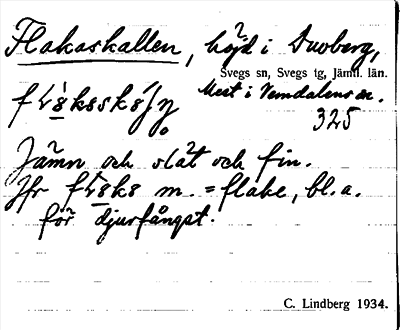 Flakaskallen, höjd i Duoberg,
Svegs sn, Svegs tg, Jämtl. län.
Mest i Vemdalens sn.
325
Jämn och slät och fin.
Jfr m. = flake, bl.a.
för djurfångst.
C. Lindberg 1934.